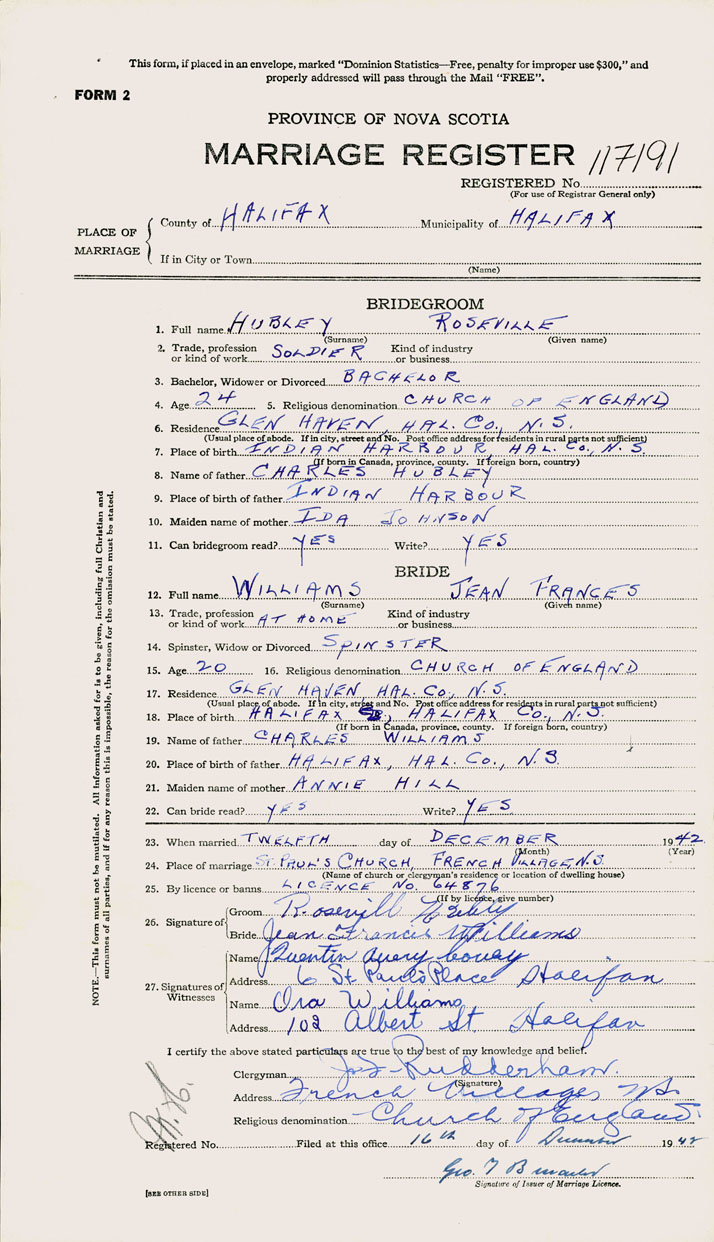 This form, if placed in an envelope, marked "Dominion Statistics—Free, penalty for improper use $300," and
properly addressed will pass through the Mail "FREE".
FORM 2
PROVINCE OF NOVA SCOTIA
MARRIAGE REGISTER 117191
REGISTERED No.
(For use of Registrar General only)
PLACE OF MARRIAGE
County of HALIFAX Municipality of HALIFAX
If in City or Town
(Name)
BRIDEGROOM
1. Full name HUBLEY ROSEVILLE
(Surname) (Given name)
2. Trade, profession or kind of work SOLDIER Kind of industry or business
3. Bachelor, Widower or Divorced BACHELOR
4. Age 24 5. Religious denomination CHURCH OF ENGLAND
6. Residence GLEN HAVEN, HAL. CO., N.S.
(Usual place of abode. If in city, street and No. Post office address for residents in rural parts not sufficient)
7. Place of birth INDIAN HARBOUR, HAL. CO., N.S.
(If born in Canada, province, county. If foreign born, country)
8. Name of father CHARLES HUBLEY
9. Place of birth of father INDIAN HARBOUR
10. Maiden name of mother IDA JOHNSON
11. Can bridegroom read? YES Write? YES
BRIDE
12. Full name WILLIAMS JEAN FRANCES
(Surname) (Given name)
13. Trade, profession or kind of work AT HOME Kind of industry or business
14. Spinster, Widow or Divorced SPINSTER
15. Age 20 16. Religious denomination CHURCH OF ENGLAND
17. Residence GLEN HAVEN, HAL. CO., N.S.
(Usual place of abode. If in city, street and No. Post office address for residents in rural parts not sufficient)
18. Place of birth HALIFAX, HALIFAX CO., N.S.
(If born in Canada, province, county. If foreign born, country)
19. Name of father CHARLES WILLIAMS
20. Place of birth of father HALIFAX, HAL. CO., N.S.
21. Maiden name of mother ANNIE HILL
22. Can bride read? YES Write? YES
23. When married TWELFTH day of DECEMBER 1942
(Month) (Year)
24. Place of marriage ST. PAUL'S CHURCH, FRENCH VILLAGE, N.S.
(Name of church or clergyman's residence or location of dwelling house)
25. By licence or banns LICENCE NO. 64876
(If by licence, give number)
26. Signature of
Groom Rosevill Hubley
Bride Jean Francis Williams
27. Signatures of Witnesses
Name Quentin Avery
Address 6 St Paul's Place Halifax
Name Ora Williams
Address 102 Albert St Halifax
I certify the above stated particulars are true to the best of my knowledge and belief.
Clergyman Rudderham.
(Signature)
Address French Village, NS.
Religious denomination Church of England.
Registered No. Filed at this office 16th day of December 1942
Geo. T
Signature of Issuer of Marriage Licence.
[SEE OTHER SIDE]
NOTE.—This form must not be mutilated. All information asked for is to be given, including full Christian and
surnames of all parties, and if for any reason this is impossible, the reason for the omission must be stated.